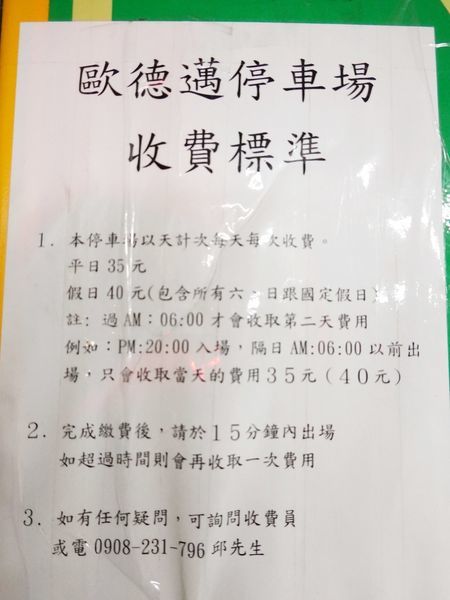 歐德邁停車場
收費標準
1. 本停車場以天計次每天每次收費。
平日35元
假日40元(包含所有六、日跟國定假日)
註: 過AM:06:00才會收取第二天費用
例如:PM:20:00入場,隔日AM:06:00以前出
場,只會收取當天的費用35元(40元)
2. 完成繳費後,請於15分鐘內出場
如超過時間則會再收取一次費用
3. 如有任何疑問,可詢問收費員
或電 0908-231-796 邱先生